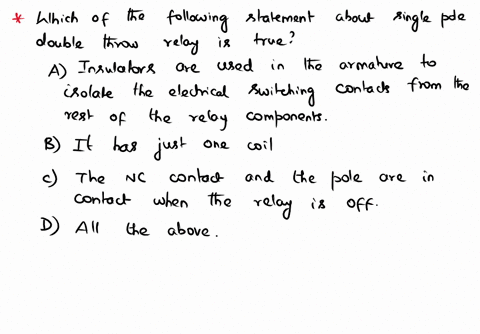 * Which of the following statement about single pole
double throw relay is true?
A) Insulators are used in the armature to
isolate the electrical switching contacts from the
rest of the relay components.
B) It has just one coil
C) The NC contact and the pole are in
contact when the relay is off.
D) All the above.